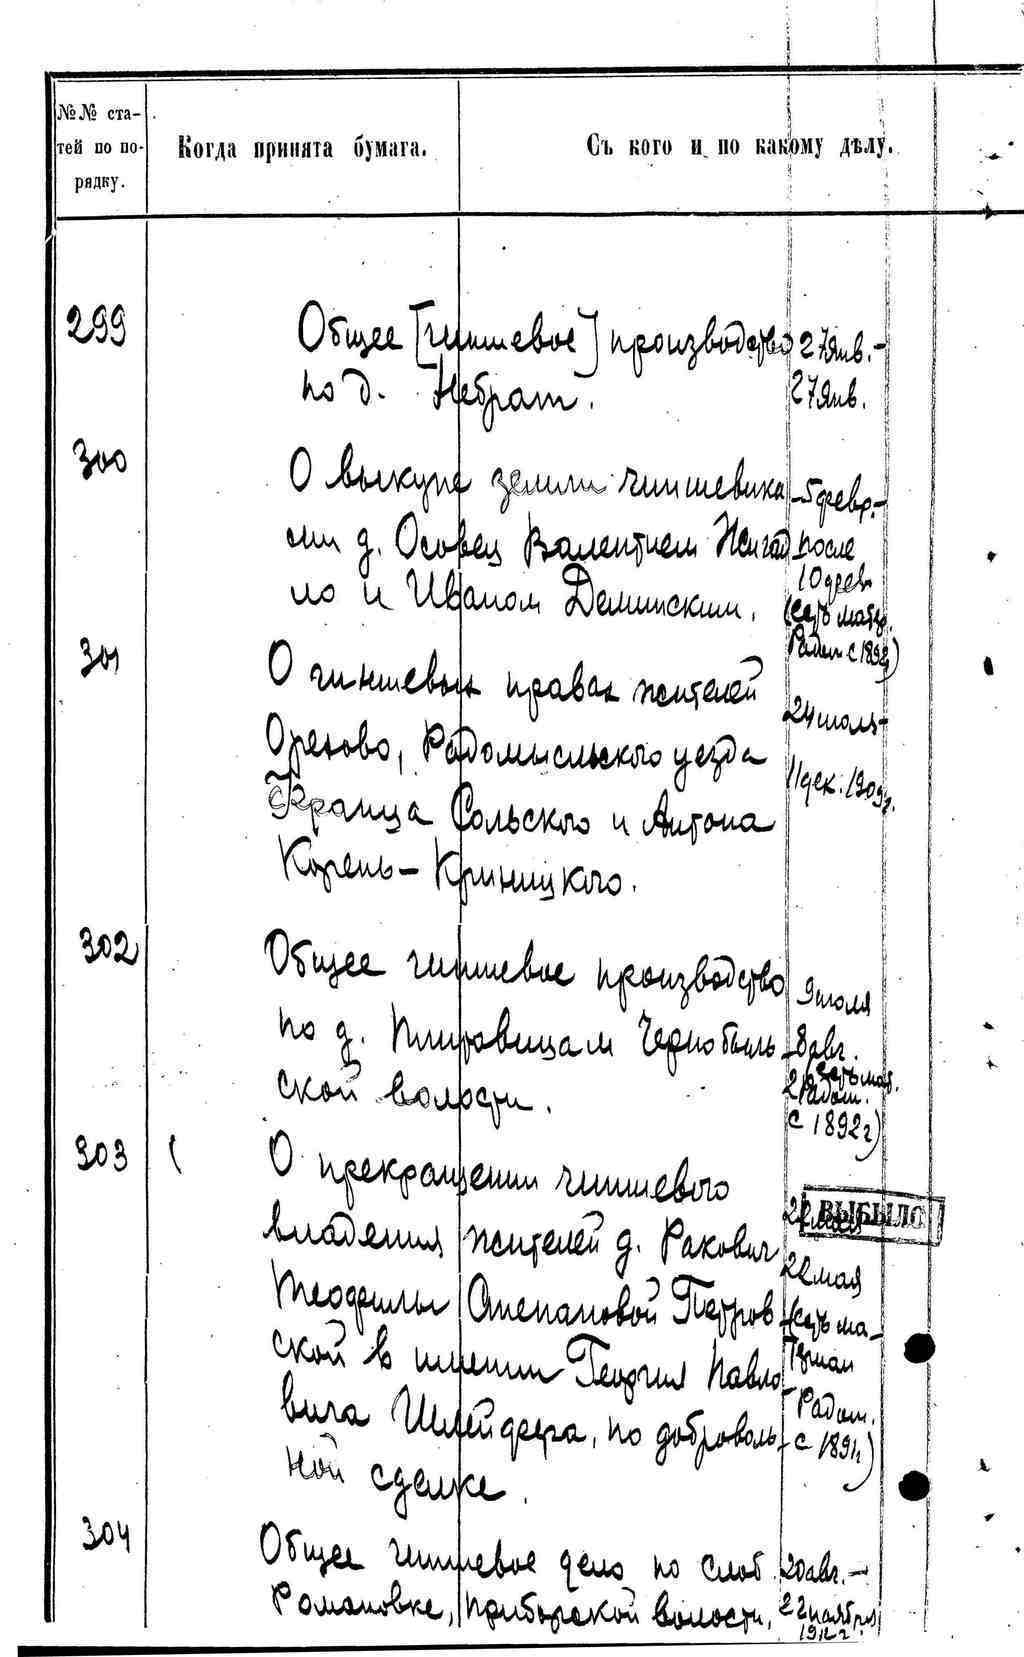 №№ ста-
тей по по-
рядку.
Когда принята бумага.
Съ кого и по какому дѣлу.
299
Общее [чиншевое] производство
по д. Небрат.
27 Янв. -
27 Янв.
300
О выкупе земли чиншевика
ми д. Осовец Валентием Жигад
ло и Иваном Деминским.
5 февр. -
после
10 февр
(есть матер.
Радом с 1892)
301
О чиншевых правах жителей
Орехово, Радомысльского уезда
Франца Сольского и Антона
Корень-Криницкого.
24 июля -
11 дек. 1909 г.
302
Общее чиншевое производство
по д. Пилиповицам Чернобыль
ской волости.
9 июля
- 8 авг.
(есть мат.
Радом.
с 1892 г)
303
О прекращении чиншевого
владения жителей д. Ракович
Теофилы Степановой Петров
ской в имении Георгия Павло
вича Шлейфера, по доброволь
ной сделке.
22 мая
ВЫБЫЛО
22 мая
(есть ма-
териал
Радом.
с 1891 г)
304
Общее чиншевое дело по слоб.
Романовке, Приборской волости.
20 авг. -
22 ноября
1912 г